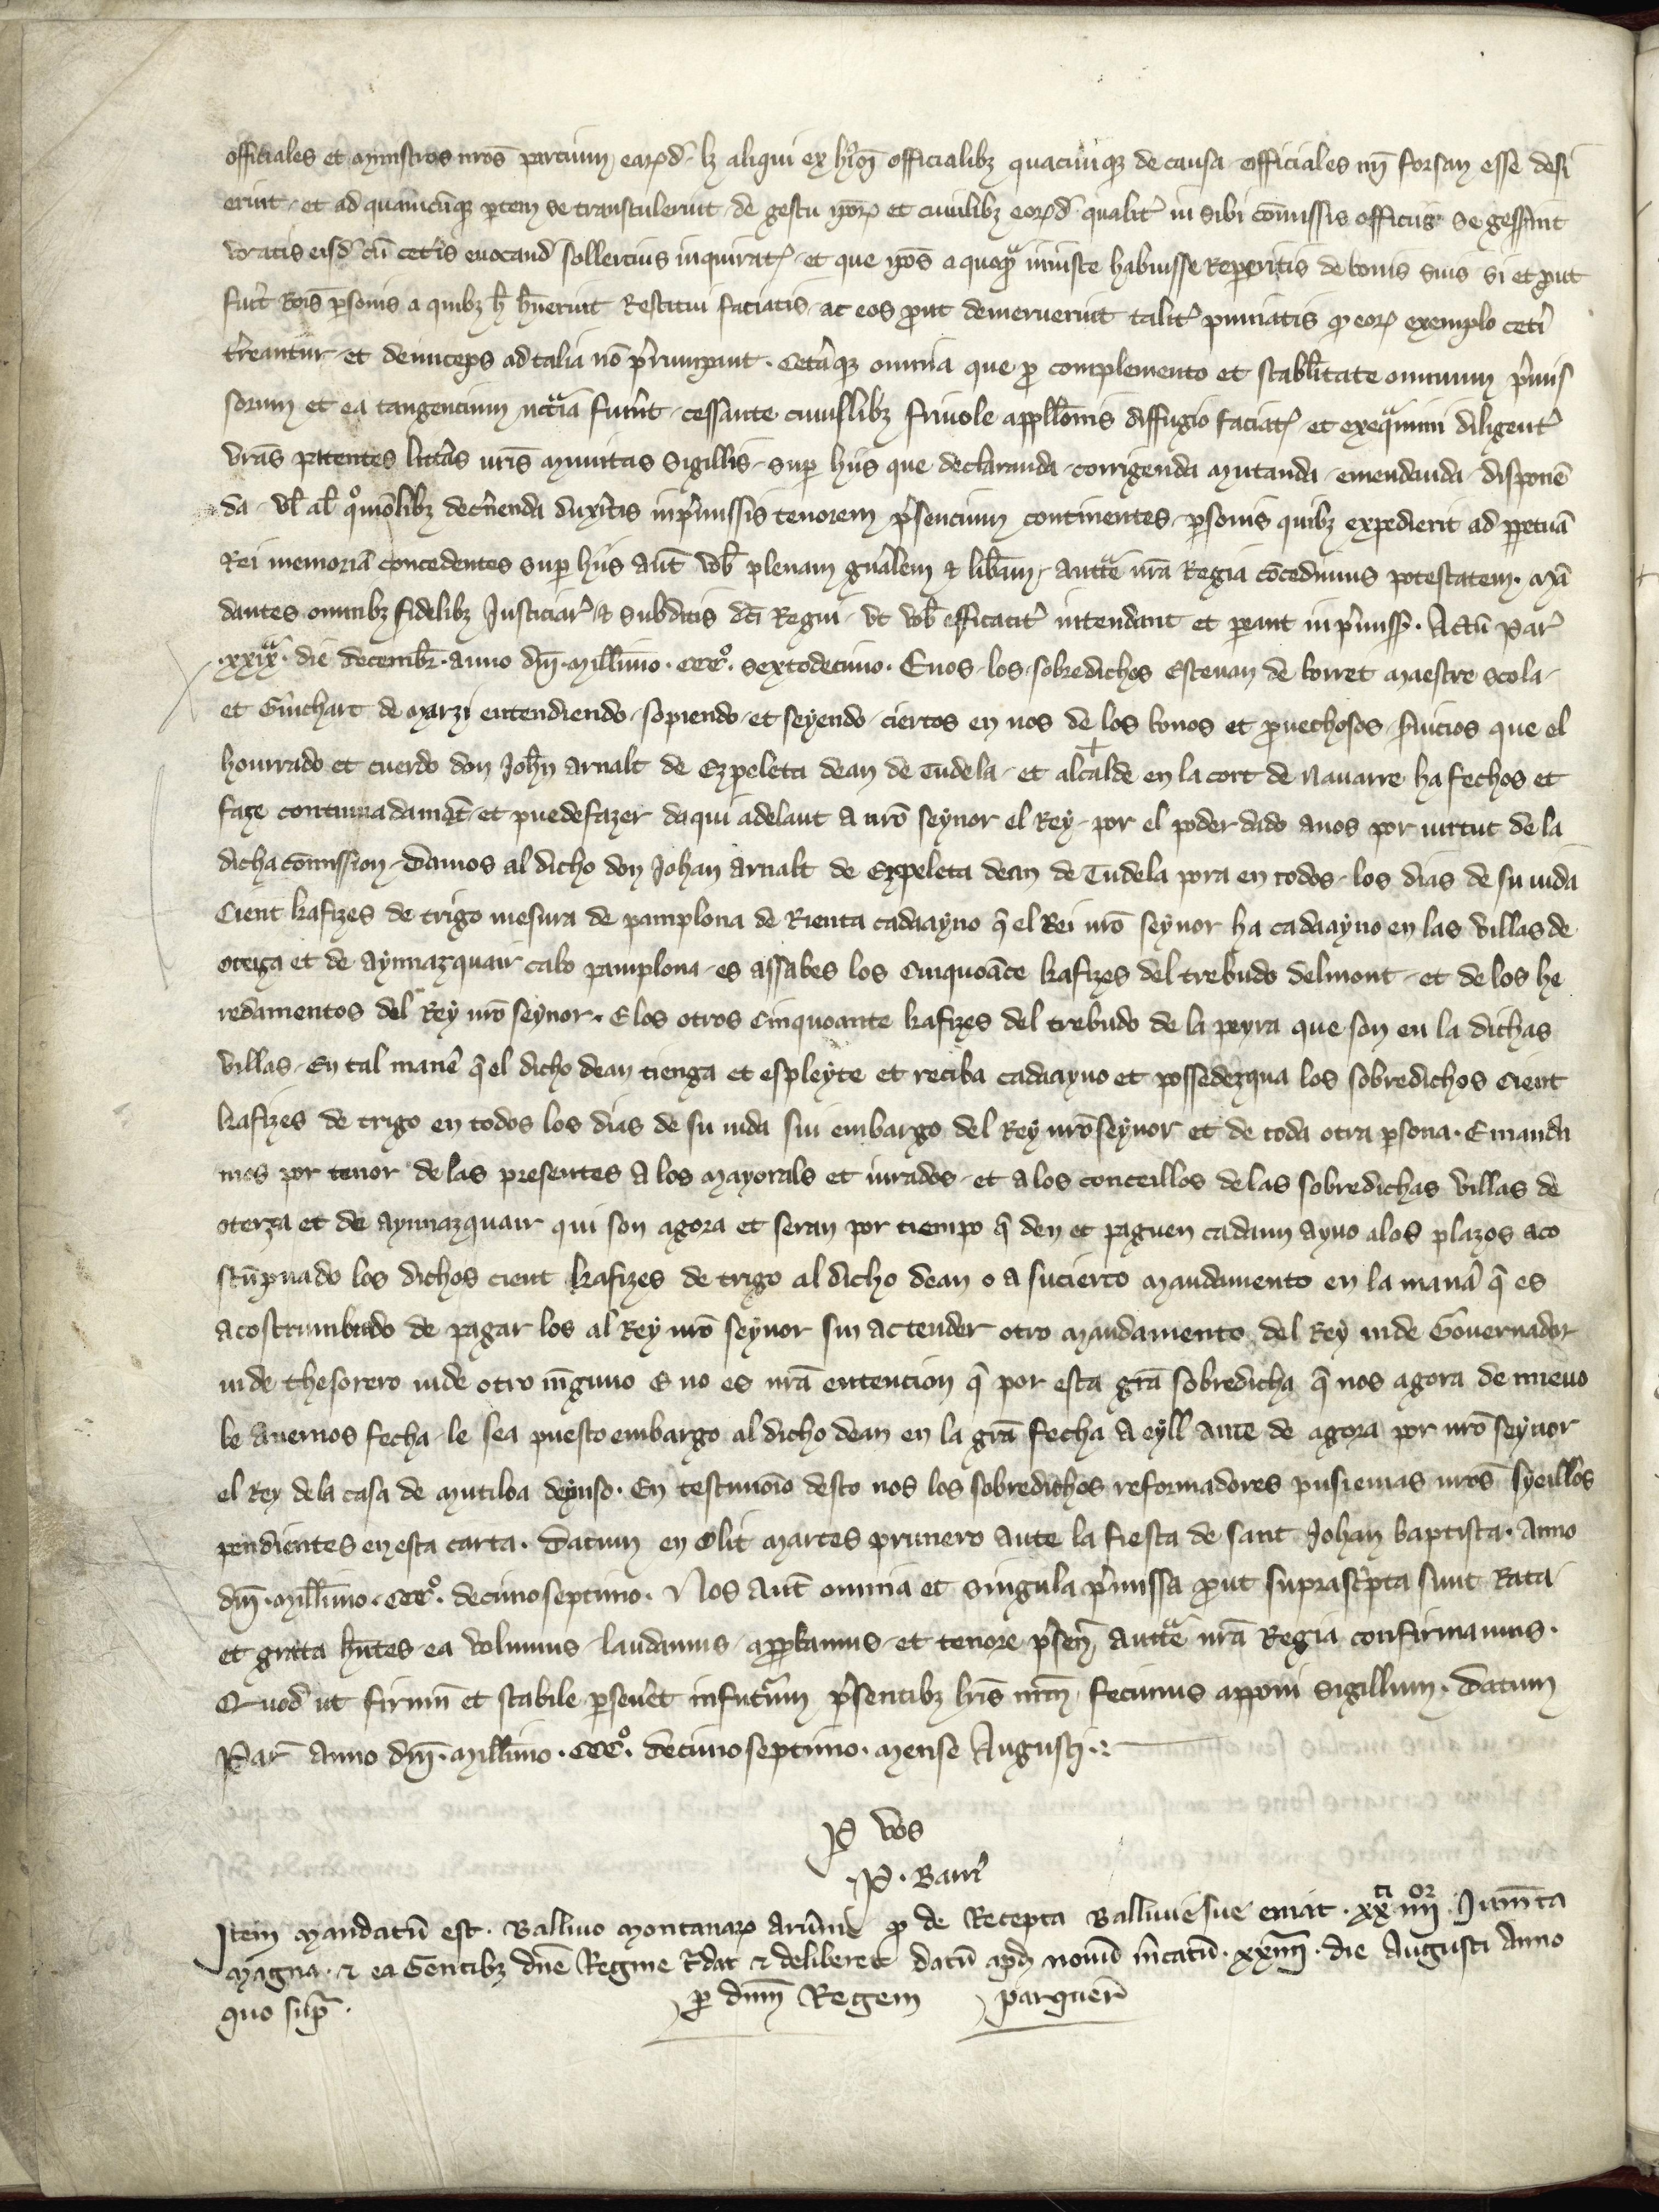 officiales et ministros nros parcium earₓd. lz aliqui ex hᵒi officialibz quacumqz de causa officiales nn̄ forsan esse desi
erint et ad quamcūqz ptem se transtulerint de gestu ip̄oꝝ et cuiuslibz eorₓd. qualit᷑ in sibi cōmissis officiis se gesserint
vocatis eisd᷑ cū cet᷑is euocand᷑ sollercius inquirat᷑ et que ip̄os a quoqᵃ iniuste habuisse reperitis de bonis suis si et put
fuer᷑ rōis psonis a quibz h̄ h̄uerint restitui faciatis ac eos prout demeruerint talit᷑ puniatis qᵈ eoꝝ exemplo cet᷑i
t᷑reantur et deinceps ad talia nō prumpant. Cet᷑aqz omnia que pro complemento et stabl̄itate omnium p᷑mis
sorum et ea tangencium nccᵃia fuer᷑nt cessante cuiuslibz friuole appll̄onis diffugio faciat᷑ et exequimini diligent᷑
vrās patentes litt᷑as vrīs munitas sigillis sup hiis que declaranda corrigenda mutanda emendanda disponē
da vl̄ al̄ qᵒmōlibz dec᷑nenda dux᷑itis in p᷑missis tenorem p᷑sencium continentes psonis quibz expedierit ad ppetuā
rei memoriā concedentes sup hiis aūt vob̄ plenam gn᷑alem & lib᷑am auct᷑te nr̄a regia cōcedimus potestatem. Mā
dantes omnibz fidelibz Justiciar᷑ & subditis dc̄i Regni vt vob̄ efficacit᷑ intendant et pareant in p᷑miss᷑. Actū Par᷑
.xxixᵃ. die decemb᷑. anno dn̄i. Mill̄imo. cccᵒ. sextodecimo. E nos los sobredichos Esteuan de borret maestre scola
et Guichart de Marzi entendiendo sopiendo et seyendo ciertos en nos de los bonos et prouechosos s᷑uicios que el
honrrado et cuerdo don Joh̄n arnalt de Ezpeleta dean de Tudela et alcalde en la cort de Nauarre ha fechos et
faze continuadamēt et puede fazer daqui adelant a nrō seynor el Rey por el poder dado a nos por virtut de la
dicha cōmission Damos al dicho don Johan arnalt de Ezpeleta dean de Tudela pora en todos los dias de su uida
Cient kafizes de trigo mesura de pamplona de Rienta cada ayno q̄ el Rei nrō seynor ha cada ayno en las villas de
oteiza et de aynnazquair cabo pamplona es assabes los Cinquoāte kafizes del trebudo delmont et de los he
redamentos del Rey nrō seynor. E los otros Cinquoante kafizes del trebudo de la peyra que son en la dichas
villas En tal man᷑e q̄ el dicho dean tienga et espleyte et reciba cada ayno et possedezqua los sobredichos Cient
kafizes de trigo en todos los dias de su uida sin embargo del Rey nrō seynor et de toda otra psona. E manda
mos por tenor de las presentes a los mayorals et iurados et a los conceillos de las sobredichas villas de
oteyza et de aynnazquair qui son agora et seran por tiempo q̄ den et paguen cadaun ayno a los plazos aco
stūpnado los dichos cient kafizes de trigo al dicho dean o a su cierto mandamento en la man᷑a q̄ es
acostrumbrado de pagar los al Rey nrō seynor sin actender otro mandamento del Rey nide Gouernador
nide thesorero nide otro nīguno E no es nrā entencion q̄ por esta grā sobredicha q̄ nos agora de nueuo
le auemos fecha le sea puesto embargo al dicho dean en la grā fecha a eyll ante de agora por nrō seynor
el Rey dela casa de mutiloa deyuso. En testimōio desto nos los sobredichos reformadores pusiemas nrōs syeillos
pendientes en esta carta. Datum en Olit martes primero ante la fiesta de sant Johan baptista. Anno
dn̄i. Mill̄imo. cccᵒ. decimo septimo. Nos aūt omnia et singula p᷑missa prout suprasc᷑pta sunt rata
et grata h̄ntes ea volumus laudamus approbamus et tenore p᷑sen᷑ auct᷑te nr̄a Regia confirmamus.
Quod ut firmū et stabile pseu᷑et in futurum p᷑sentibz litt᷑is nrm̄ fecimus apponi sigillum. Datum
Par᷑ anno dn̄i. Mill̄imo. cccᵒ. decimo septimo. mense Augusti.
P vos
P. Barr᷑
Item mandatū est. Balliuo montanaꝝ aruernie qᵈ de recepta Balliuie sue emat. xxᵗⁱ iiiiᵒʳ. Jum̄ta
magna. & ea Gentibz dn̄e Regine t᷑dat & deliberet datū apd nouū m᷑catū. xxiiiiᵃ. die Augusti Anno
quo supᵃ. p dnm̄ Regem parquer᷑